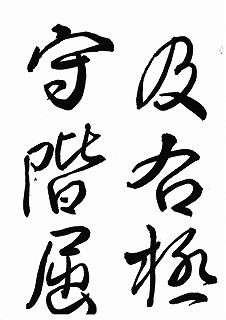 及右極
守階屈